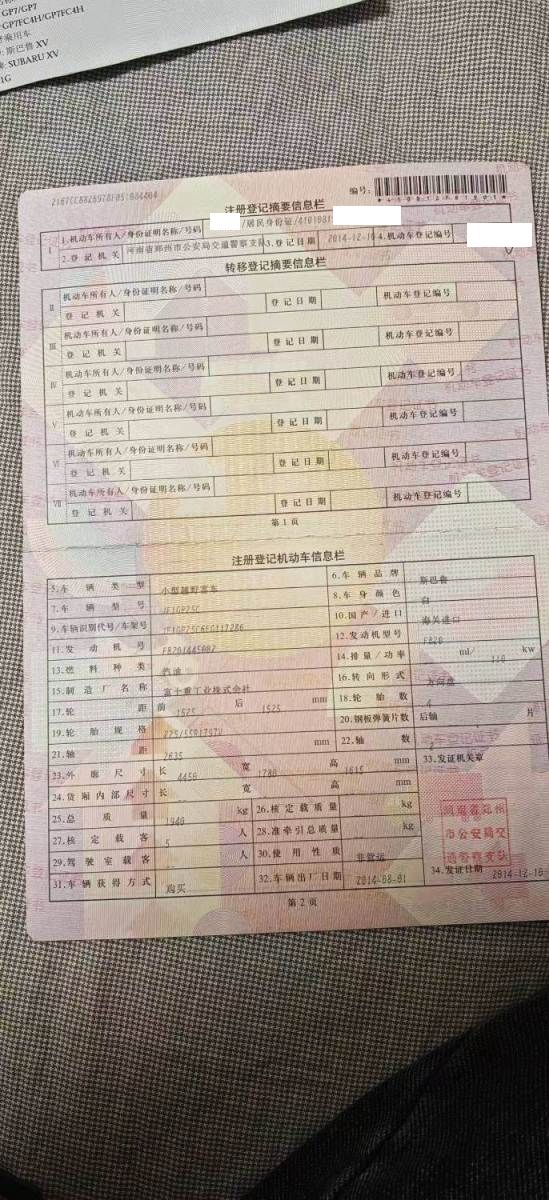 GP7/GP7
GP7FC4H/GP7FC4H
乘用车
斯巴鲁 XV
SUBARU XV
1G
编号:
注册登记摘要信息栏
I 1.机动车所有人/身份证明名称/号码 /居民身份证/4101081
2.登记机关 河南省郑州市公安局交通警察支队 3.登记日期 2014-12-16 4.机动车登记编号
转移登记摘要信息栏
II 机动车所有人/身份证明名称/号码
登记机关 登记日期 机动车登记编号
III 机动车所有人/身份证明名称/号码
登记机关 登记日期 机动车登记编号
IV 机动车所有人/身份证明名称/号码
登记机关 登记日期 机动车登记编号
V 机动车所有人/身份证明名称/号码
登记机关 登记日期 机动车登记编号
VI 机动车所有人/身份证明名称/号码
登记机关 登记日期 机动车登记编号
VII 机动车所有人/身份证明名称/号码
登记机关 登记日期 机动车登记编号
第1页
注册登记机动车信息栏
5.车辆类型 小型越野客车 6.车辆品牌 斯巴鲁
7.车辆型号 JF1GP25C 8.车身颜色 白
9.车辆识别代号/车架号 10.国产/进口 海关进口
11.发动机号 12.发动机型号 FB20
13.燃料种类 汽油 14.排量/功率 ml/ 110 kw
15.制造厂名称 富士重工业株式会社 16.转向形式 方向盘
17.轮距 前 1525 后 1525 mm 18.轮胎数 4
19.轮胎规格 225/55R1797V 20.钢板弹簧片数 后轴 片
21.轴距 2635 mm 22.轴数 2
23.外廓尺寸 长 4450 宽 1780 高 1615 mm 33.发证机关章
24.货厢内部尺寸 长 宽 高 mm
25.总质量 1940 kg 26.核定载质量 kg
27.核定载客 5 人 28.准牵引总质量 kg
29.驾驶室载客 人 30.使用性质 非营运
31.车辆获得方式 购买 32.车辆出厂日期 2014-08-01 34.发证日期 2014-12-16
河南省郑州
市公安局交
通警察支队
第2页